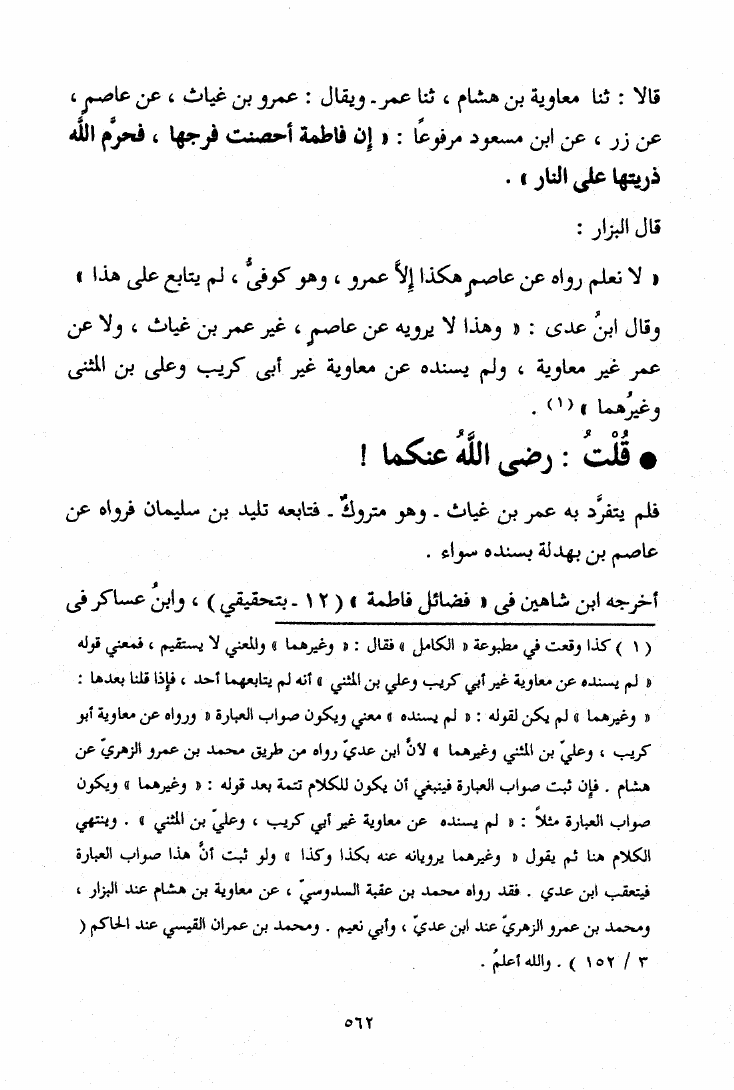 قالا : ثنا معاوية بن هشام ، ثنا عمر ـ ويقال : عمرو بن غياث ، عن عاصمٍ ،
عن زر ، عن ابن مسعود مرفوعًا : « إن فاطمة أحصنت فرجها ، فحرَّم اللَّه
ذريتها على النار » .
قال البزار :
« لا نعلم رواه عن عاصمٍ هكذا إلاَّ عمرو ، وهو كوفىُّ ، لم يتابع على هذا »
وقال ابنُ عدى : « وهذا لا يرويه عن عاصمٍ ، غير عمر بن غياث ، ولا عن
عمر غير معاوية ، ولم يسنده عن معاوية غير أبى كريب وعلى بن المثنى
وغيرُهما »(١) .
● قُلْتُ : رضى اللَّهُ عنكما !
فلم يتفرَّد به عمر بن غياث ـ وهو متروكٌ ـ فتابعه تليد بن سليمان فرواه عن
عاصم بن بهدلة بسنده سواء .
أخرجه ابن شاهين فى « فضائل فاطمة » ( ١٢ ـ بتحقيقي ) ، وابنُ عساكر فى
( ١ ) كذا وقعت في مطبوعة « الكامل » فقال : « وغيرهما » والمعني لا يستقيم ، فمعني قوله
« لم يسنده عن معاوية غير أبي كريب وعلي بن المثني » أنه لم يتابعهما أحد ، فإذا قلنا بعدها :
« وغيرهما » لم يكن لقوله : « لم يسنده » معني ويكون صواب العبارة « ورواه عن معاوية أبو
كريب ، وعليّ بن المثني وغيرهما » لأنَّ ابن عديّ رواه من طريق محمد بن عمرو الزهريّ عن
هشام . فإن ثبت صواب العبارة فينبغي أن يكون للكلام تتمة بعد قوله : « وغيرهما » ويكون
صواب العبارة مثلاً : « لم يسنده عن معاوية غير أبي كريب ، وعليّ بن المثني » . وينتهي
الكلام هنا ثم يقول « وغيرهما يرويانه عنه بكذا وكذا » ولو ثبت أنَّ هذا صواب العبارة
فيتعقب ابن عدي . فقد رواه محمد بن عقبة السدوسيّ ، عن معاوية بن هشام عند البزار ،
ومحمد بن عمرو الزهريّ عند ابن عديّ ، وأبي نعيم . ومحمد بن عمران القيسي عند الحاكم (
٣ / ١٥٢ ) . والله أعلمُ .
٥٦٢